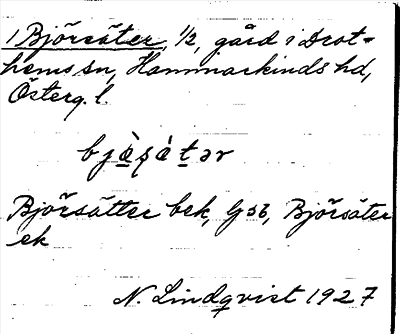 1 Björsäter, 1/2, gård i Drot-
hems sn, Hammarkinds hd,
Österg. l.
bjæ̀ʂætər
Björsätter bek, G 56, Björsäter
ek
N. Lindqvist 1927